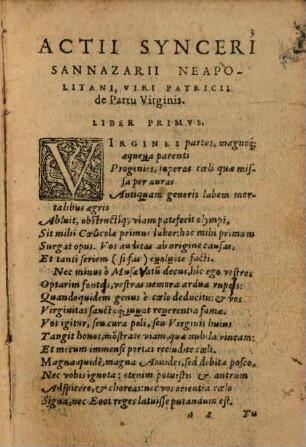 3
ACTII SYNCERI
SANNAZARII NEAPO-
LITANI, VIRI PATRICII
de Partu Virginis.
LIBER PRIMVS.
VIRGINEI partus, magnoq;
æqueua parenti
Progenies, superas cœli quæ mis-
sa per auras
Antiquam generis labem mor-
talibus ægris
Abluit, obstructiq; viam patefecit olympi,
Sit mihi Cælicolæ primus labor: hoc mihi primum
Surgat opus. Vos auditas ab origine causas,
Et tanti seriem (si fas) euoluite facti.
Nec minus ô Musæ vatũ decus, hic ego vestros
Optarim fonteis, vestras nemora ardua rupeis:
Quandoquidem genus è cœlo deducitis: & vos
Virginitas sanctæq; iuuat reuerentia famæ.
Vos igitur, seu cura poli, seu Virginis huius
Tangit honos, mõstrate viam, qua nubila vincam:
Et mecum immensi portas recludite cœli.
Magna quidẽ, magna Aonides, sed debita posco,
Nec vobis ignota: etenim potuistis & antrum
Adspicere, & choreas: nec vos orientia cœlo
Signa, nec Eoos reges latuisse putandum est.
a 2 Tu